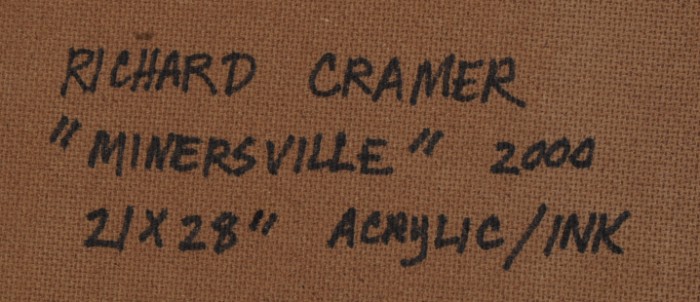 RICHARD CRAMER
"MINERSVILLE" 2000
21X28" ACRYLIC/INK